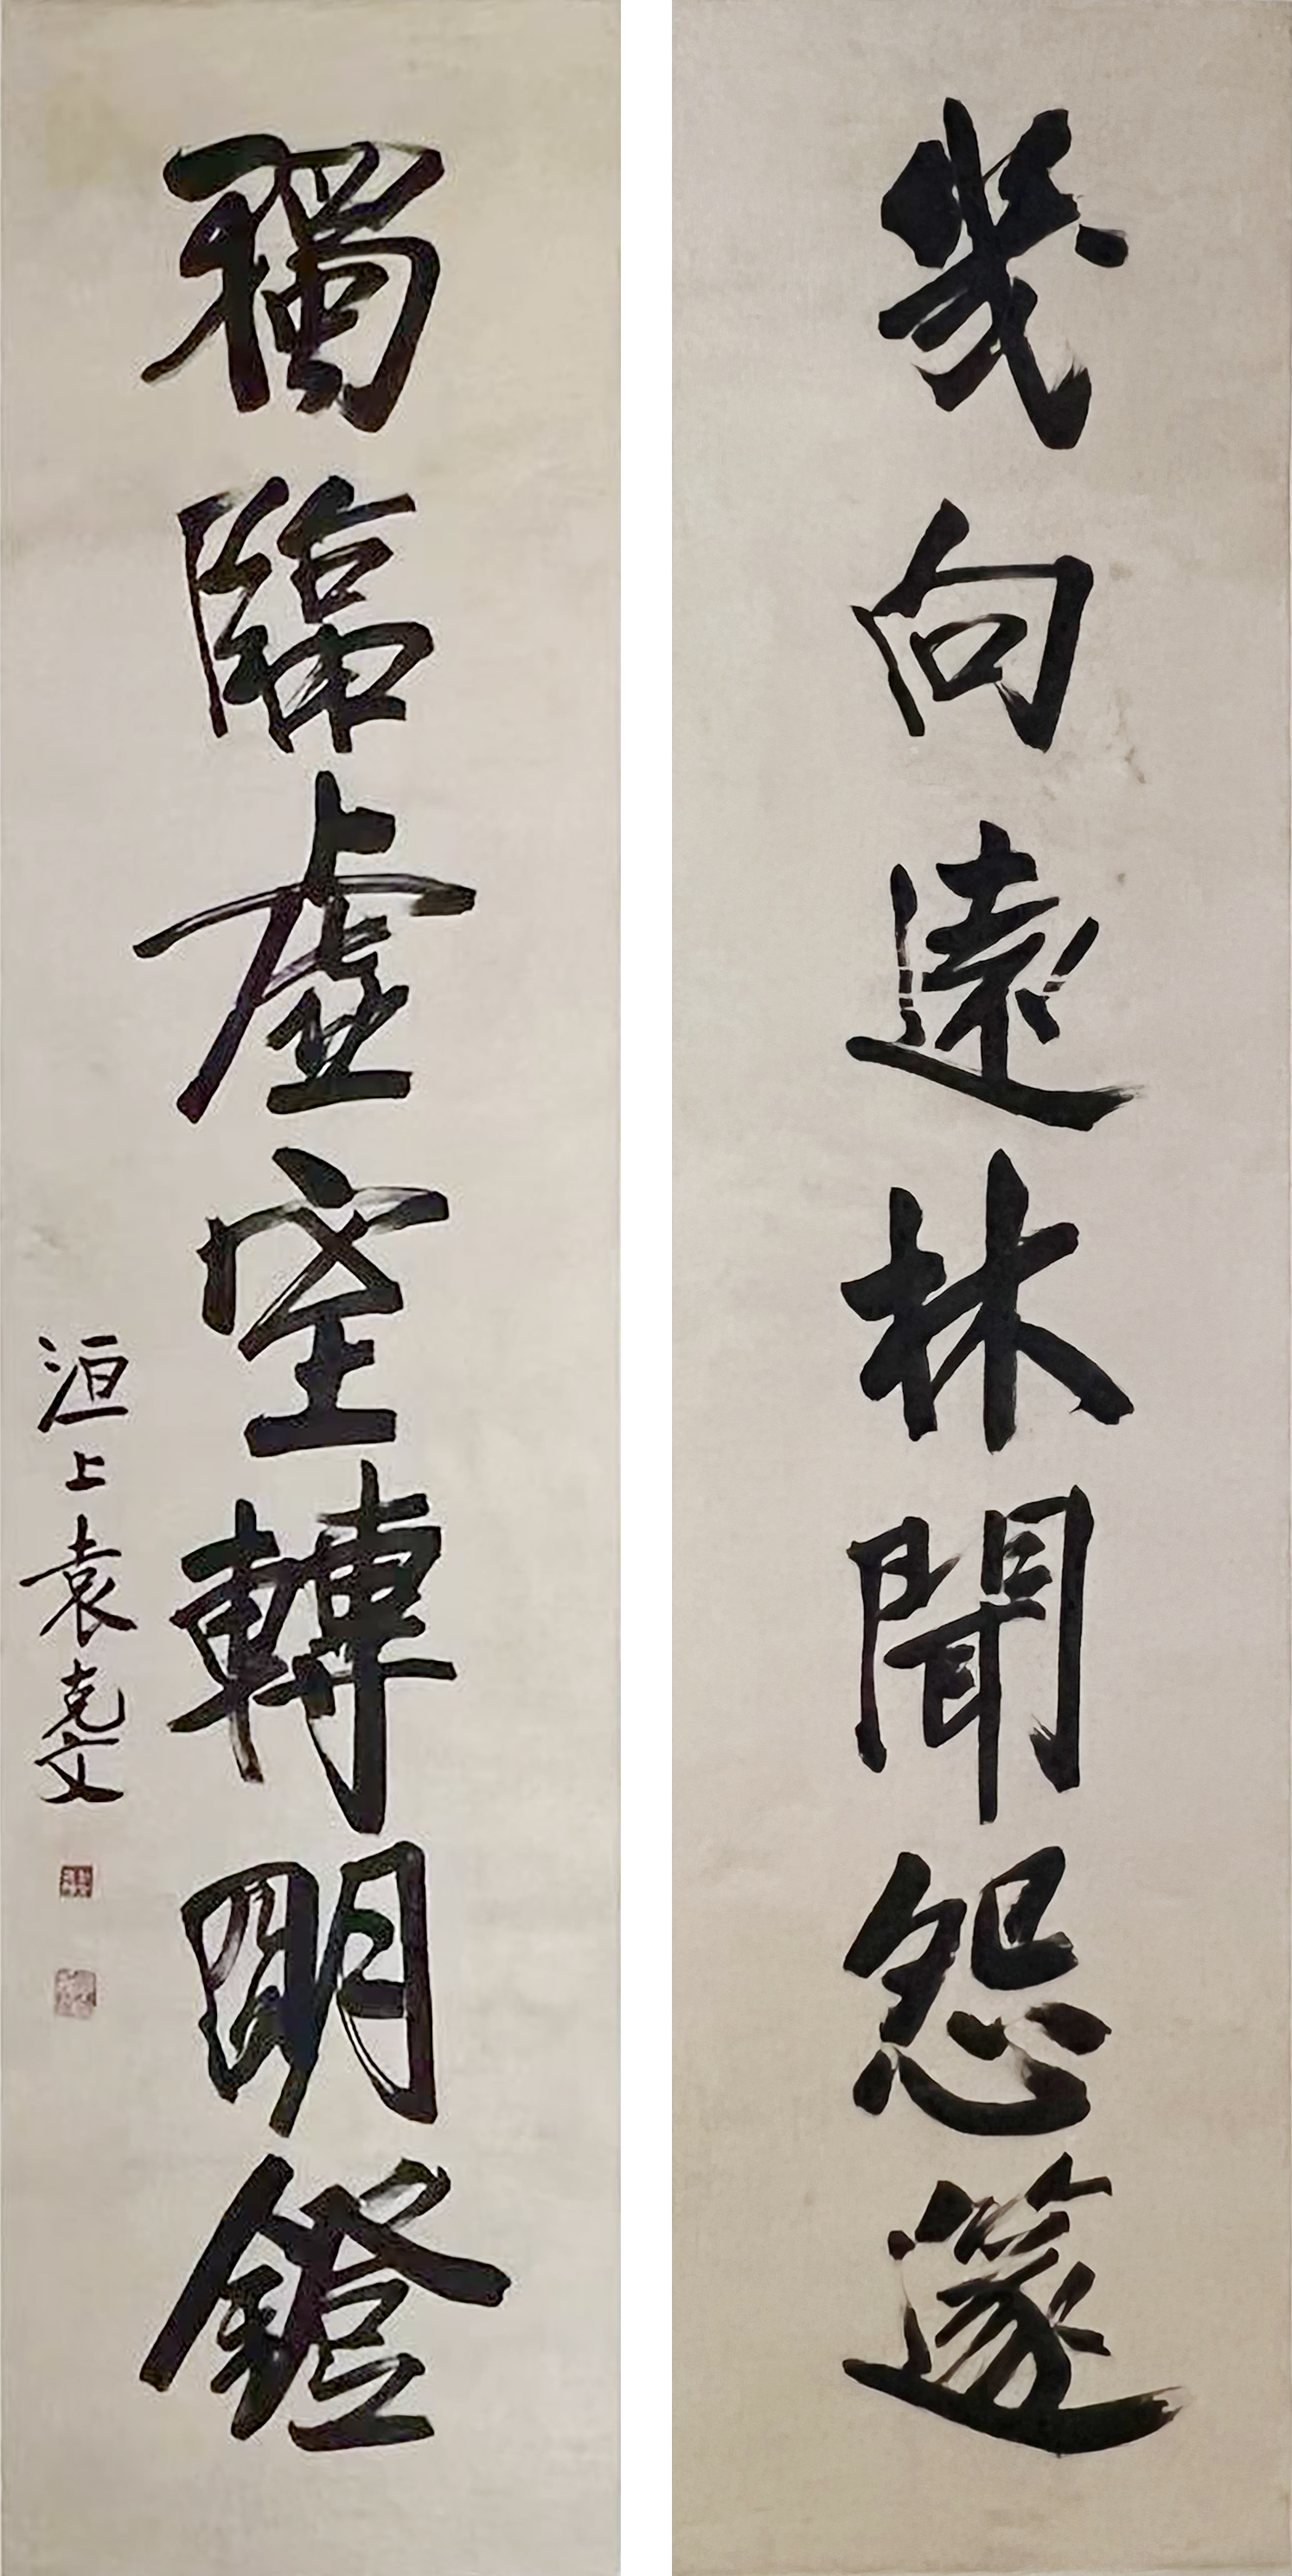 幾向遠林聞怨篴
獨臨虛空轉明鐙
洹上袁克文